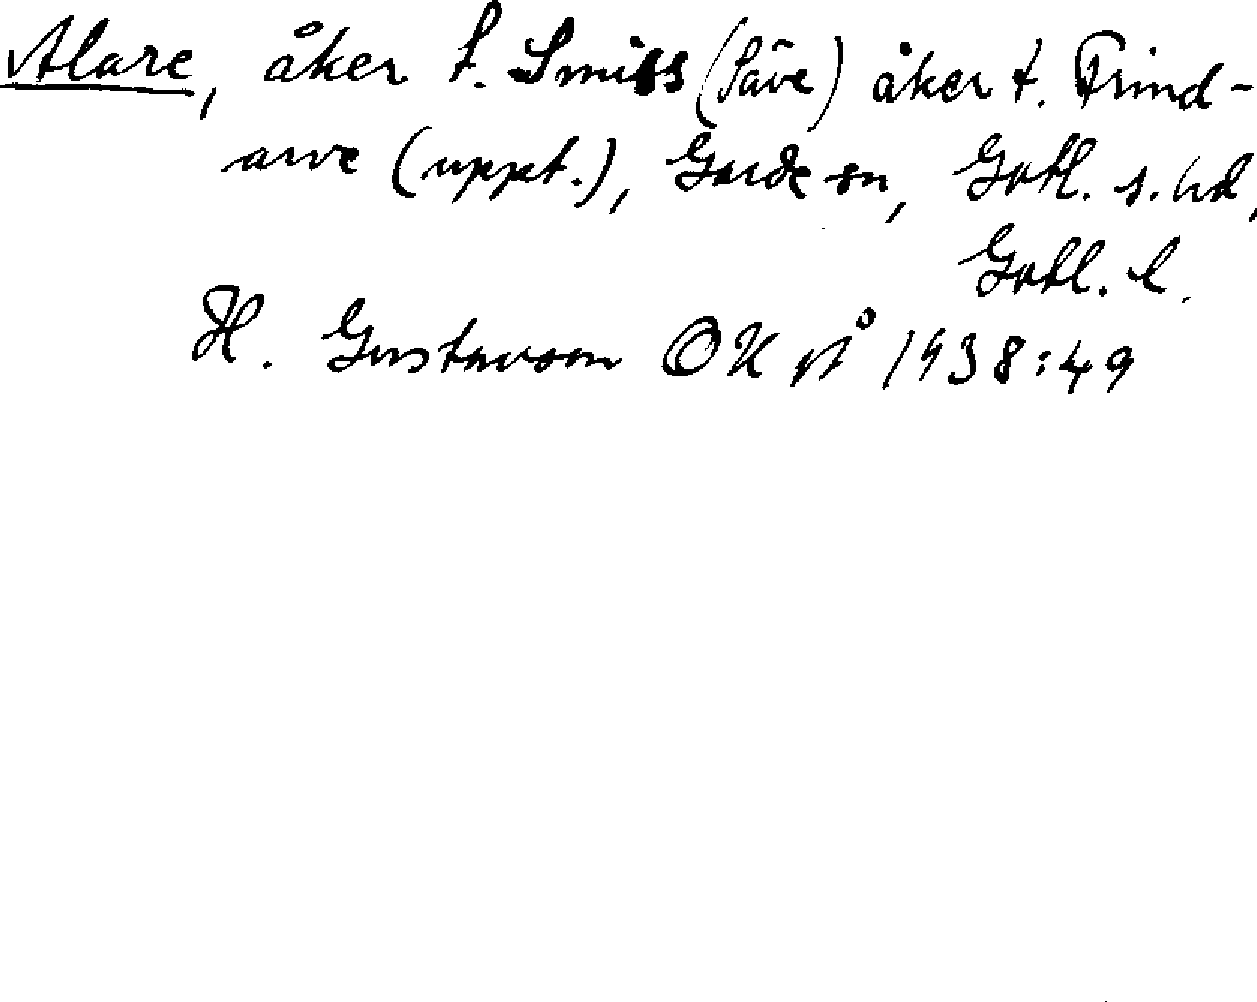 Alare, åker t. Smiss (Säve) åker t. Frind-
arve (uppt.), Garde sn, Gotl. s. hd,
Gotl. l.
H. Gustavson OKpÅ 1938:49